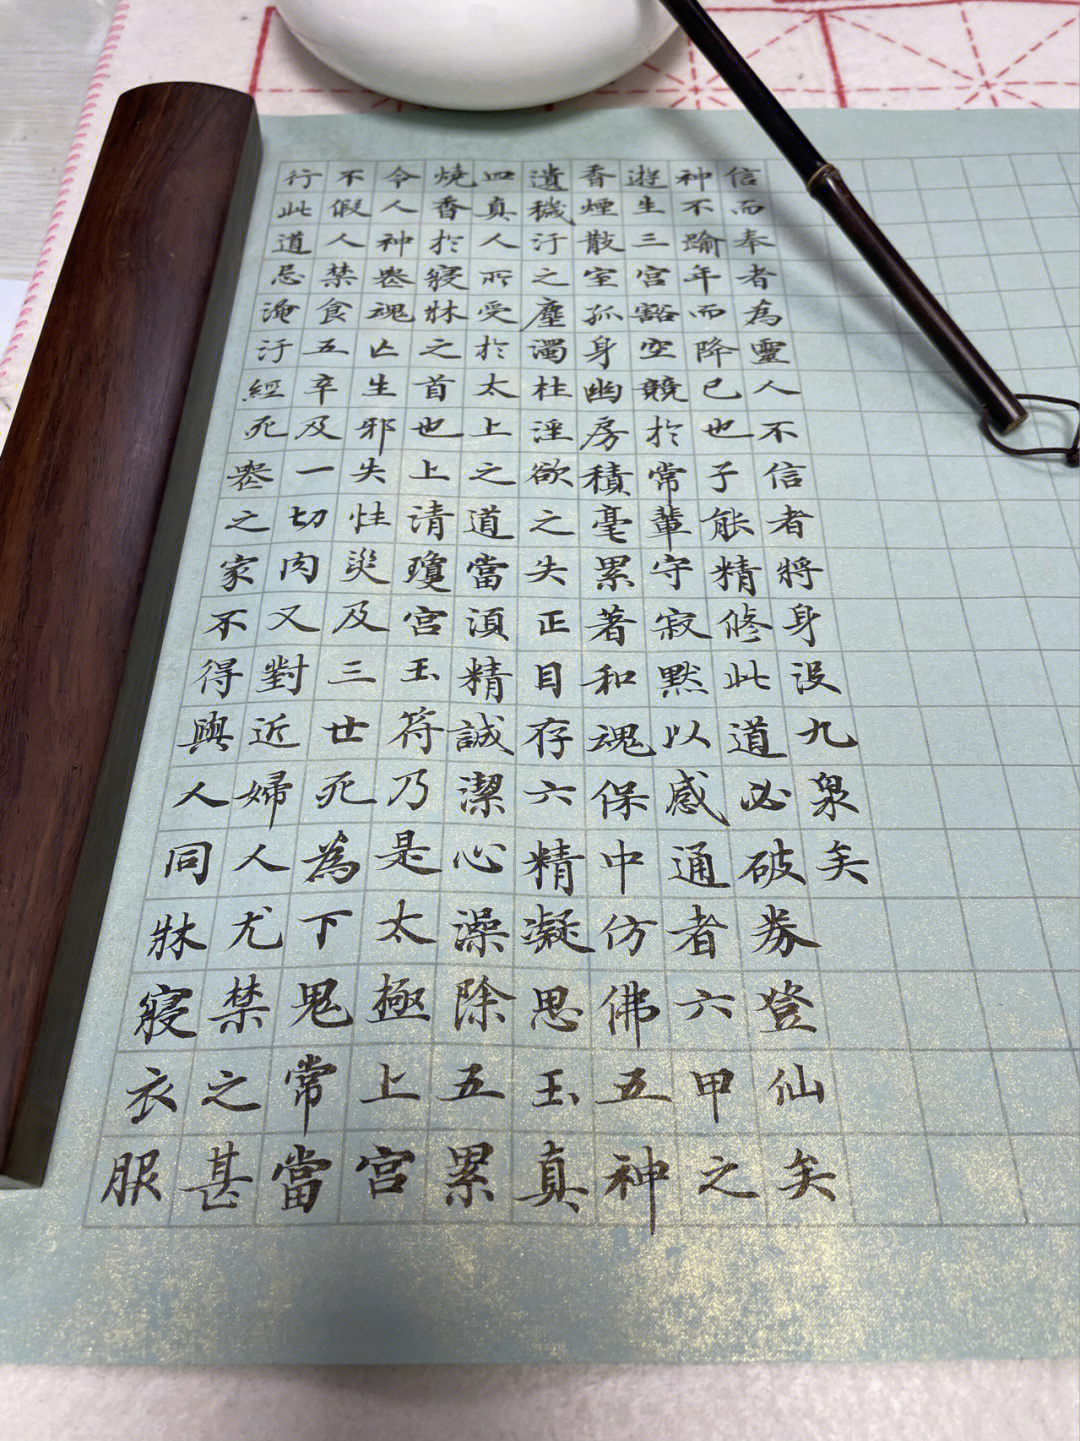 行此道忌淹汙經死喪之家不得與人同牀寢衣服
不假人禁食五辛及一切肉又對近婦人尤禁之甚
令人神喪魂亡生邪失性災及三世死為下鬼常當
燒香於寢牀之首也上清瓊宮玉符乃是太極上宮
四真人所受於太上之道當須精誠潔心澡除五累
遺穢汙之塵濁杜淫欲之失正目存六精凝思玉真
香煙散室孤身幽房積毫累著和魂保中仿佛五神
遊生三宮豁空競於常輩守寂默以感通者六甲之
神不踰年而降已也子能精修此道必破券登仙矣
信而奉者為靈人不信者將身没九泉矣